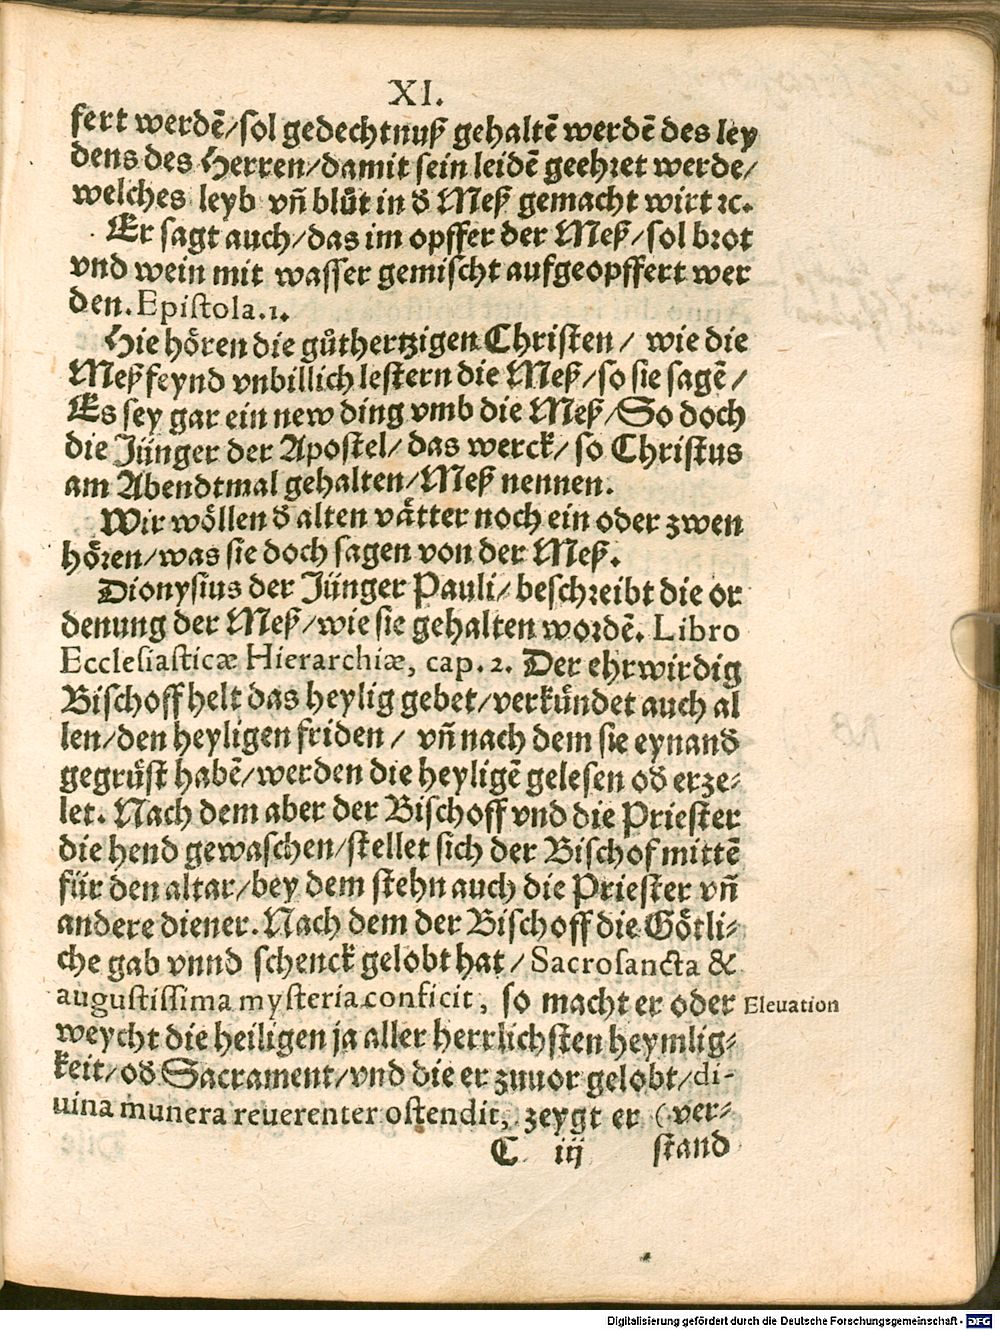 XI.
fert werdē/sol gedechtnuß gehaltē werdē des ley
dens des Herren/damit sein leidē geehret werde/
welches leyb vñ blůt in d Meß gemacht wirt ꝛc.
Er sagt auch/das im opffer der Meß/sol brot
vnd wein mit wasser gemischt aufgeopffert wer
den. Epistola.1.
Hie hören die gůthertzigen Christen/ wie die
Meßfeynd vnbillich lestern die Meß/so sie sagē/
Es sey gar ein new ding vmb die Meß/So doch
die Jünger der Apostel/ das werck/ so Christus
am Abendtmal gehalten/Meß nennen.
Wir wöllen d alten vätter noch ein oder zwen
hören/was sie doch sagen von der Meß.
Dionysius der Jünger Pauli/ beschreibt die or
denung der Meß/wie sie gehalten wordē. Libro
Ecclesiasticæ Hierarchiæ, cap. 2. Der ehrwirdig
Bischoff helt das heylig gebet/verkündet auch al
len/den heyligen friden/ vñ nach dem sie eynand
gegrüst habē/werden die heyligē gelesen od erze-
let. Nach dem aber der Bischoff vnd die Priester
die hend gewaschen/stellet sich der Bischof mittē
für den altar/bey dem stehn auch die Priester vñ
andere diener. Nach dem der Bischoff die Götli-
che gab vnnd schenck gelobt hat/ Sacrosancta &
augustissima mysteria conficit, so macht er oder
Eleuation
weycht die heiligen ja aller herrlichsten heymlig-
keit/od Sacrament/vnd die er zuuor gelobt/di-
uina munera reuerenter ostendit, zeygt er (ver-
C iij stand
Digitalisierung gefördert durch die Deutsche Forschungsgemeinschaft - DFG